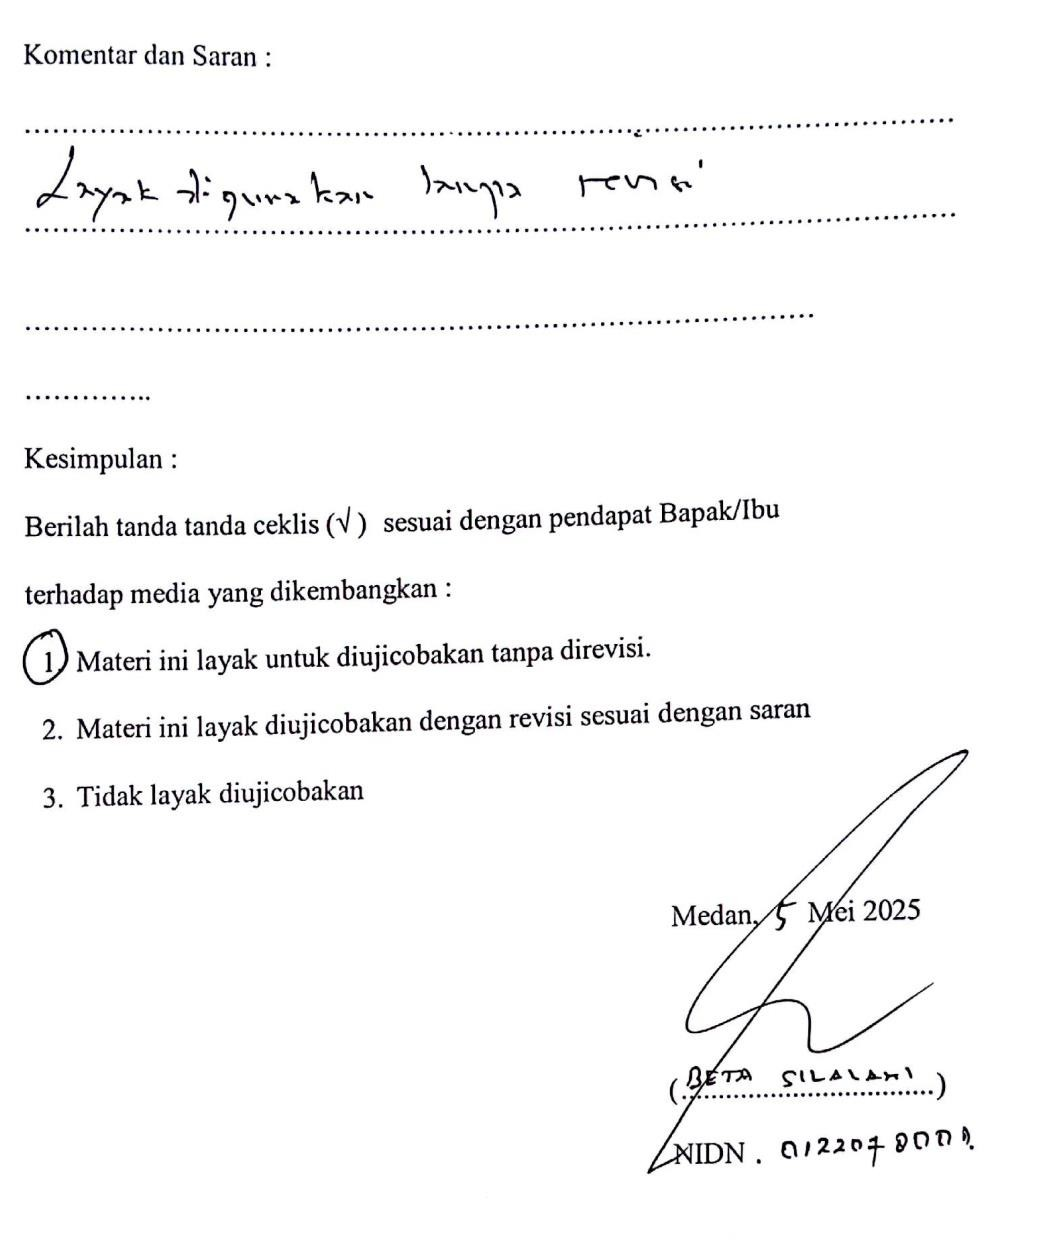 Komentar dan Saran :
Layak digunakan tanpa revisi
Kesimpulan :
Berilah tanda tanda ceklis (√ ) sesuai dengan pendapat Bapak/Ibu
terhadap media yang dikembangkan :
1. Materi ini layak untuk diujicobakan tanpa direvisi.
2. Materi ini layak diujicobakan dengan revisi sesuai dengan saran
3. Tidak layak diujicobakan
Medan, 5 Mei 2025
(BETA SILALAHI)
NIDN .